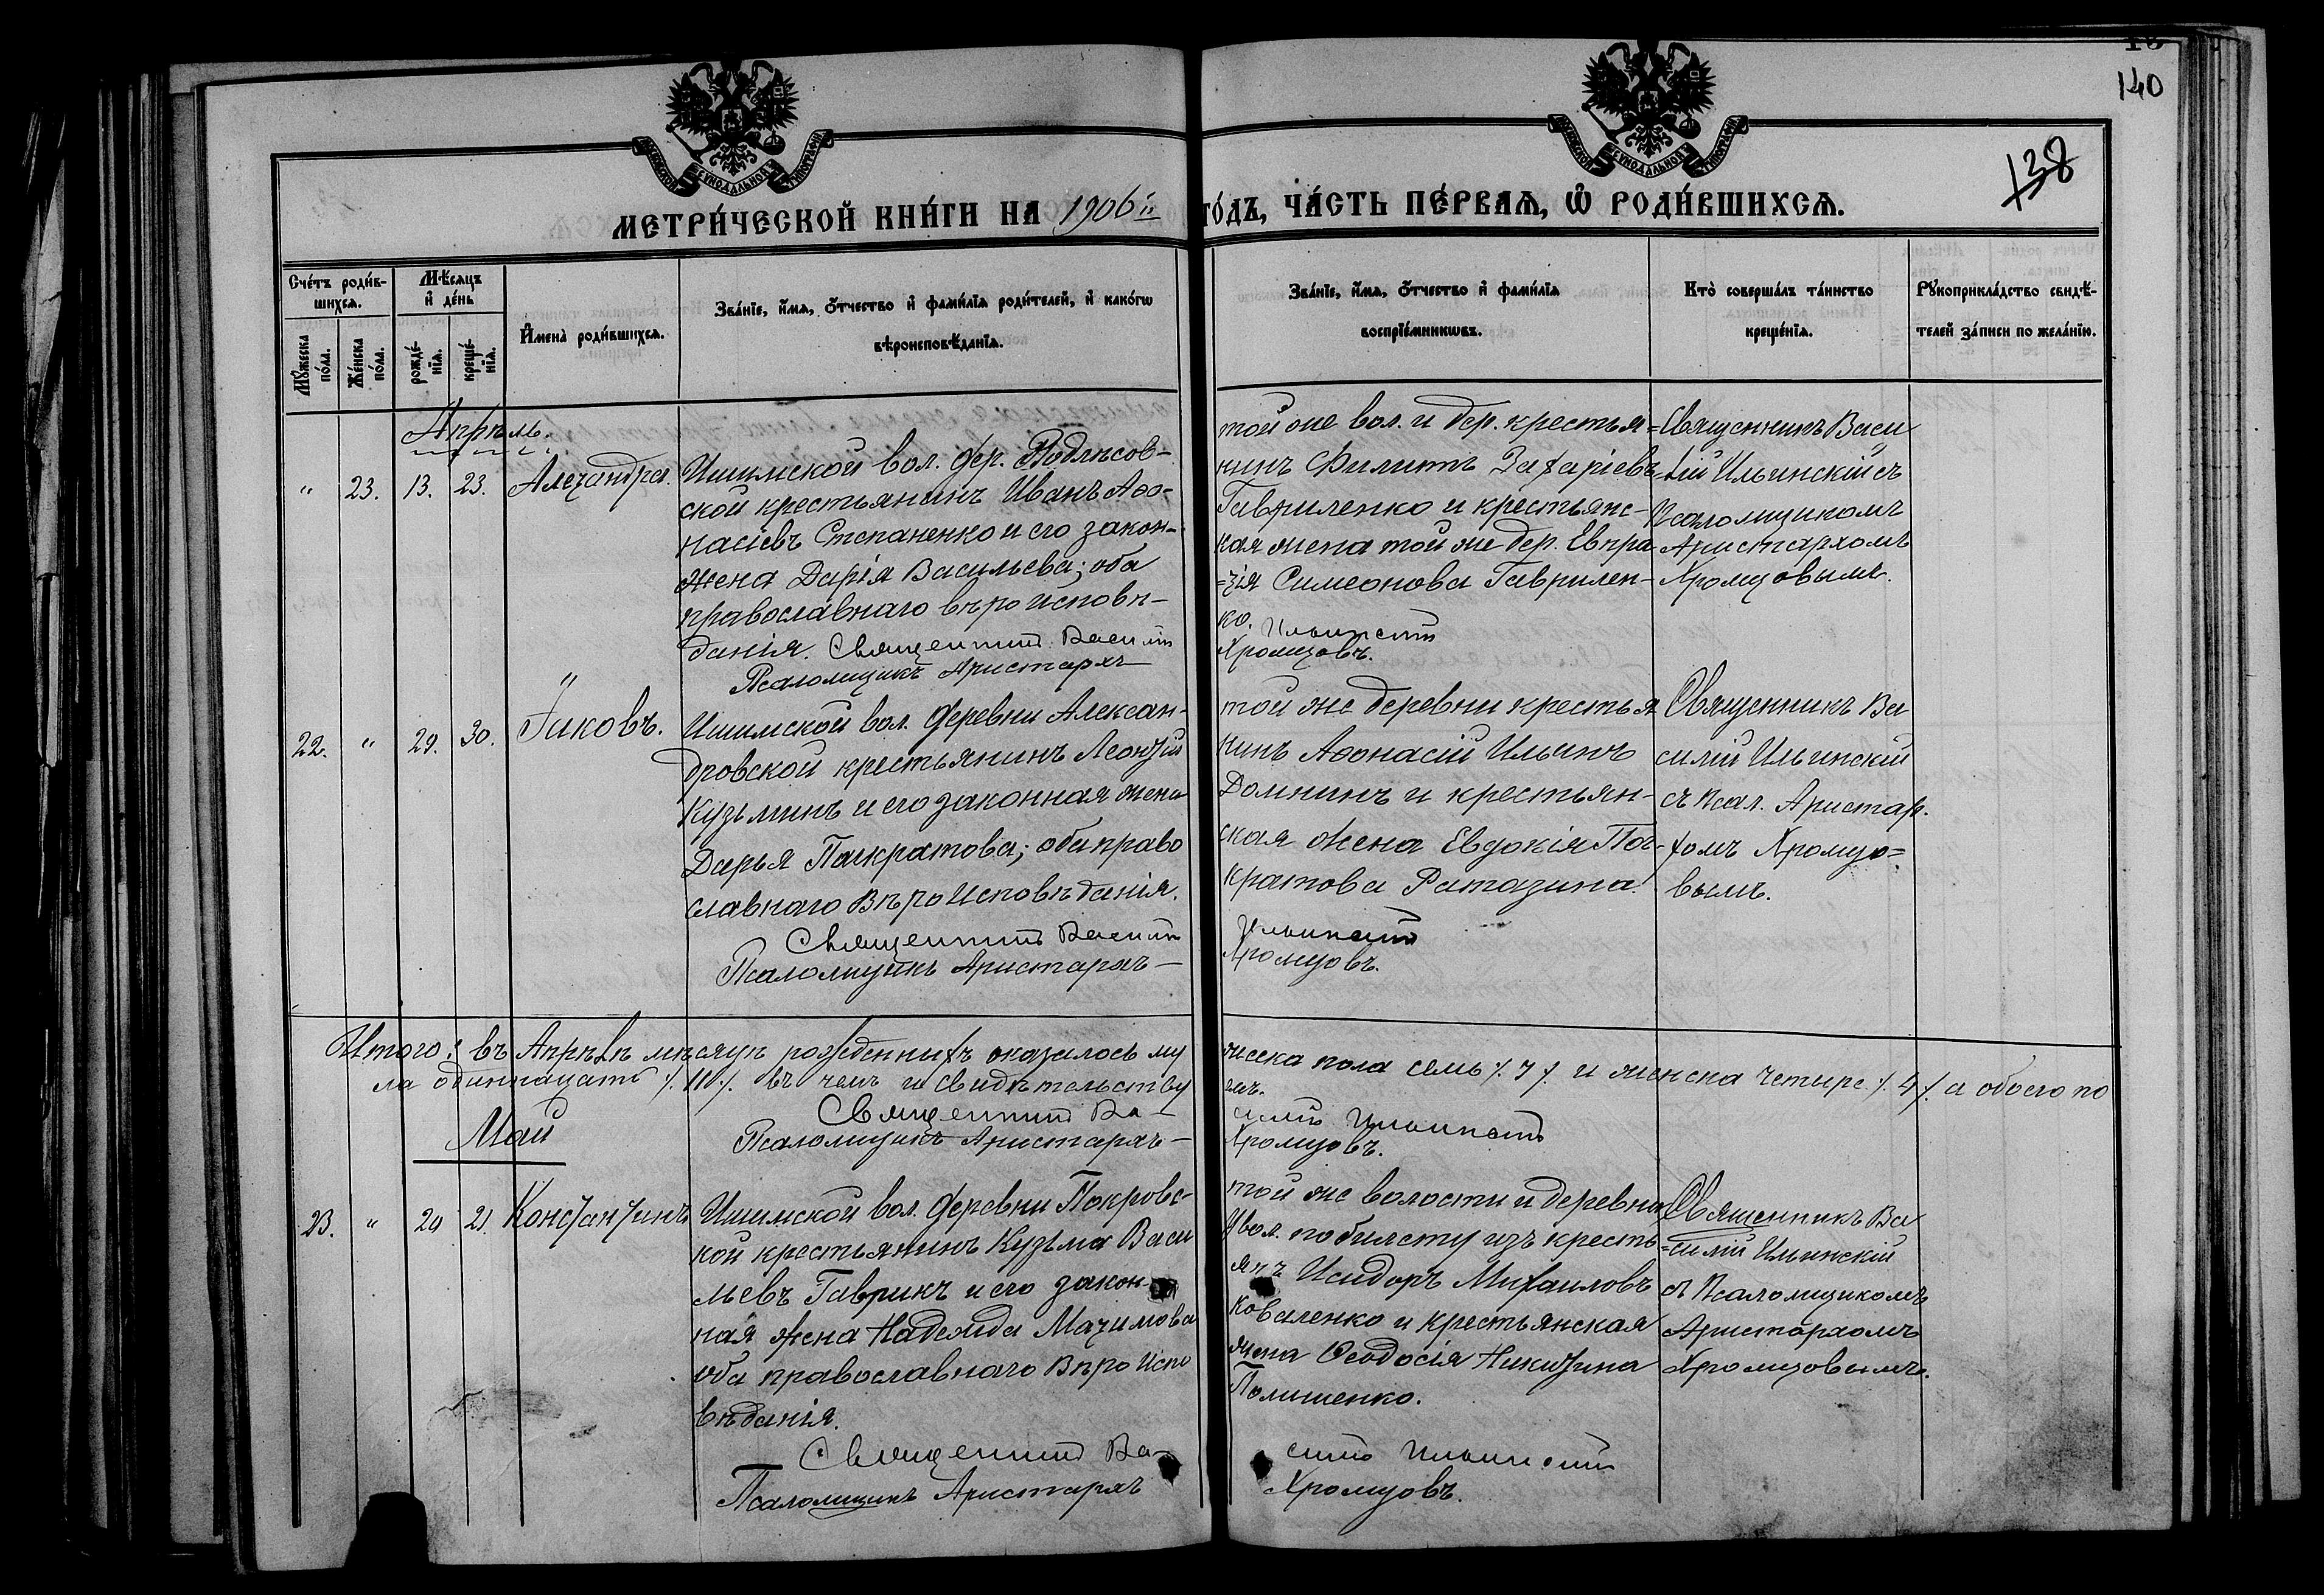 140
138
МЕТРИ́ЧЕСКОЙ КНИ́ГИ НА 1906й
ГО́ДЪ, ЧА́СТЬ ПЕ́РВАѦ, Ѡ҆ РОДИ́ВШИХСѦ.
Сче́тъ роди́в-
шихсѧ.
Мꙋ́жеска
по́ла.
Же́нска
по́ла.
Мѣ́сѧцъ
и҆ де́нь
рожде́-
нїѧ.
креще́-
нїѧ.
И҆мена̀ роди́вшихсѧ.
Зва́нїе, и҆́мѧ, ѻ҆́тчество и҆ фами́лїѧ роди́телей, и҆ како́гѡ
вѣроисповѣ́данїѧ.
Зва́нїе, и҆́мѧ, ѻ҆́тчество и҆ фами́лїѧ
воспрїе́мникѡвъ.
Кто̀ соверша́лъ та́инство
креще́нїѧ.
Рꙋкоприкла́дство свидѣ́-
телей за́писи по жела́нїю.
Апрѣль.
" 23. 13. 23. Алеѯандра.
Ишимской вол. дер. Подлѣсов-
ской крестьянинъ Иванъ Аѳо-
насіевъ Степаненко и его закон-
жена Дарія Васильева; оба
православнаго вѣроисповѣ-
данія. Священникъ Василій
Псаломщикъ Аристархъ
той же вол. и дер. крестья=
нинъ Филиппъ Захаріевъ
Гавриленко и крестьянс-
кая жена той же дер. Евпра
=ѯія Симеонова Гаврилен-
ко. Ильинскій
Хромцовъ.
Священникъ Васи
лій Ильинскій съ
Псаломщикомъ
Аристархомъ
Хромцовымъ.
22. " 29. 30. Іаковъ.
Ишимской вол. деревни Алексан-
дровской крестьянинъ Леонтій
Кузьминъ и его законная жена
Дарья Панкратова; оба право
славнаго вѣроисповѣданія.
Священникъ Василій
Псаломщикъ Аристархъ
той же деревни крестья
нинъ Аѳонасій Ильинъ
Домнинъ и крестьян-
ская жена Евдокія Пан-
кратова
Ильинскій
Хромцовъ.
Священникъ Ва
силій Ильинскій
съ Псал. Аристар.
хомъ Хромцо=
вымъ.
Итого: въ Апрѣлѣ мѣсяцѣ рожденныхъ оказалось му
жеска пола семь /.7/. и женска четыре /.4/. а обоего по
ла одиннацать /.11/. въ чемъ и свидѣтельству
емъ.
Священникъ Ва-
силій Ильинскій
Псаломщикъ Аристархъ
Хромцовъ.
Май
23. " 20 21. Константинъ
Ишимской вол. деревни Покровс-
кой крестьянинъ Кузьма Васи
льевъ Гаврикъ и его закон-
ная жена Надежда Маѯимова
оба православнаго вѣроиспо
вѣданія.
Священникъ Ва-
Псаломщикъ Аристархъ
той же волости и деревни
увол. по билету изъ кресть
янъ Исидоръ Михаиловъ
Коваленко и крестьянская
жена Ѳеодосія Никитина
силій Ильинскій
Хромцовъ.
Священникъ Ва
=силій Ильинскій
съ Псаломщикомъ
Аристархомъ
Хромцовымъ.